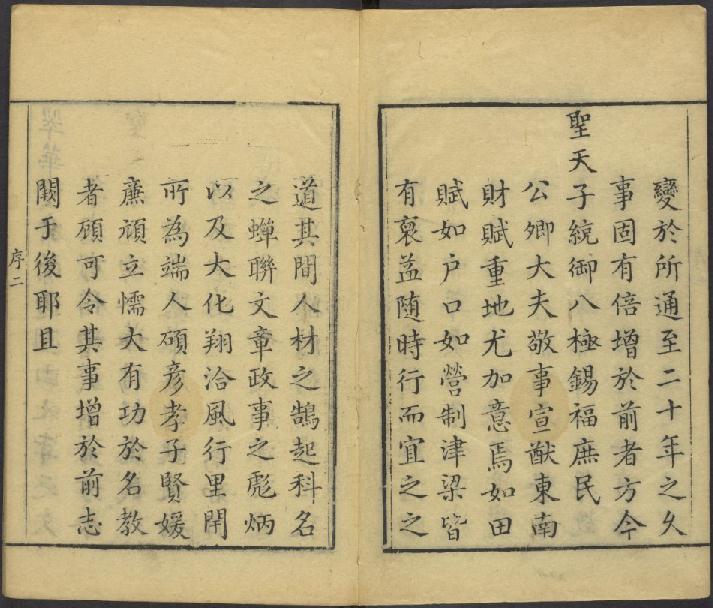 變於所通至二十年之久
事固有倍增於前者方今
聖天子統御八極錫福庶民
公卿大夫敬事宣猷東南
財賦重地尤加意焉如田
賦如户口如營制津梁皆
有裒益随時行而宜之之
道其間人材之鵠起科名
之蟬聯文章政事之彪炳
以及大化翔洽風行里閈
所為端人碩彦孝子賢媛
亷頑立懦大有功於名教
者頋可令其事增於前志
闕于後耶且
序二